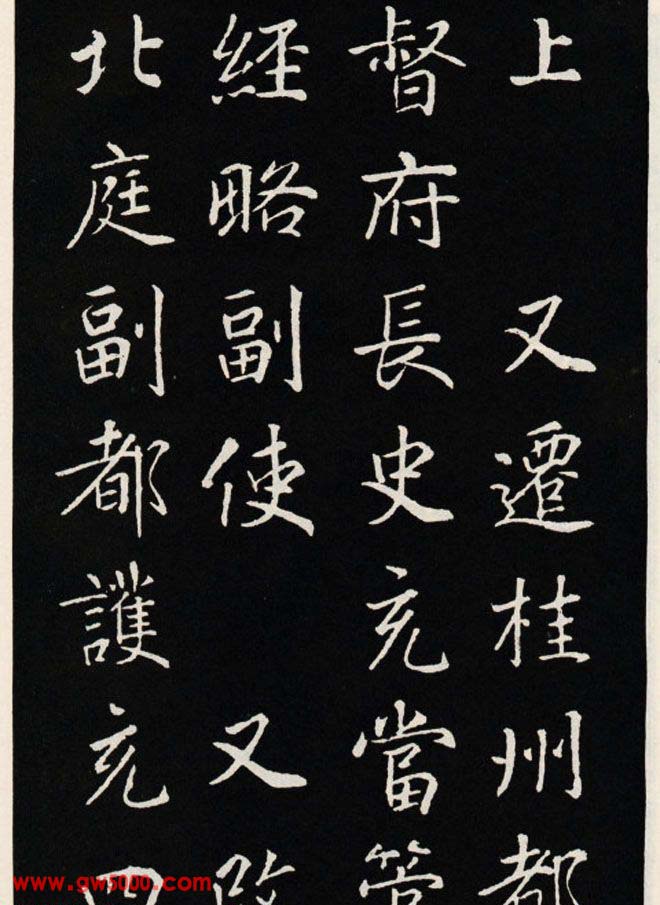 上　又遷桂州都
督府長史充當管
經略副使　又改
北庭副都護充四
www.gw5000.com